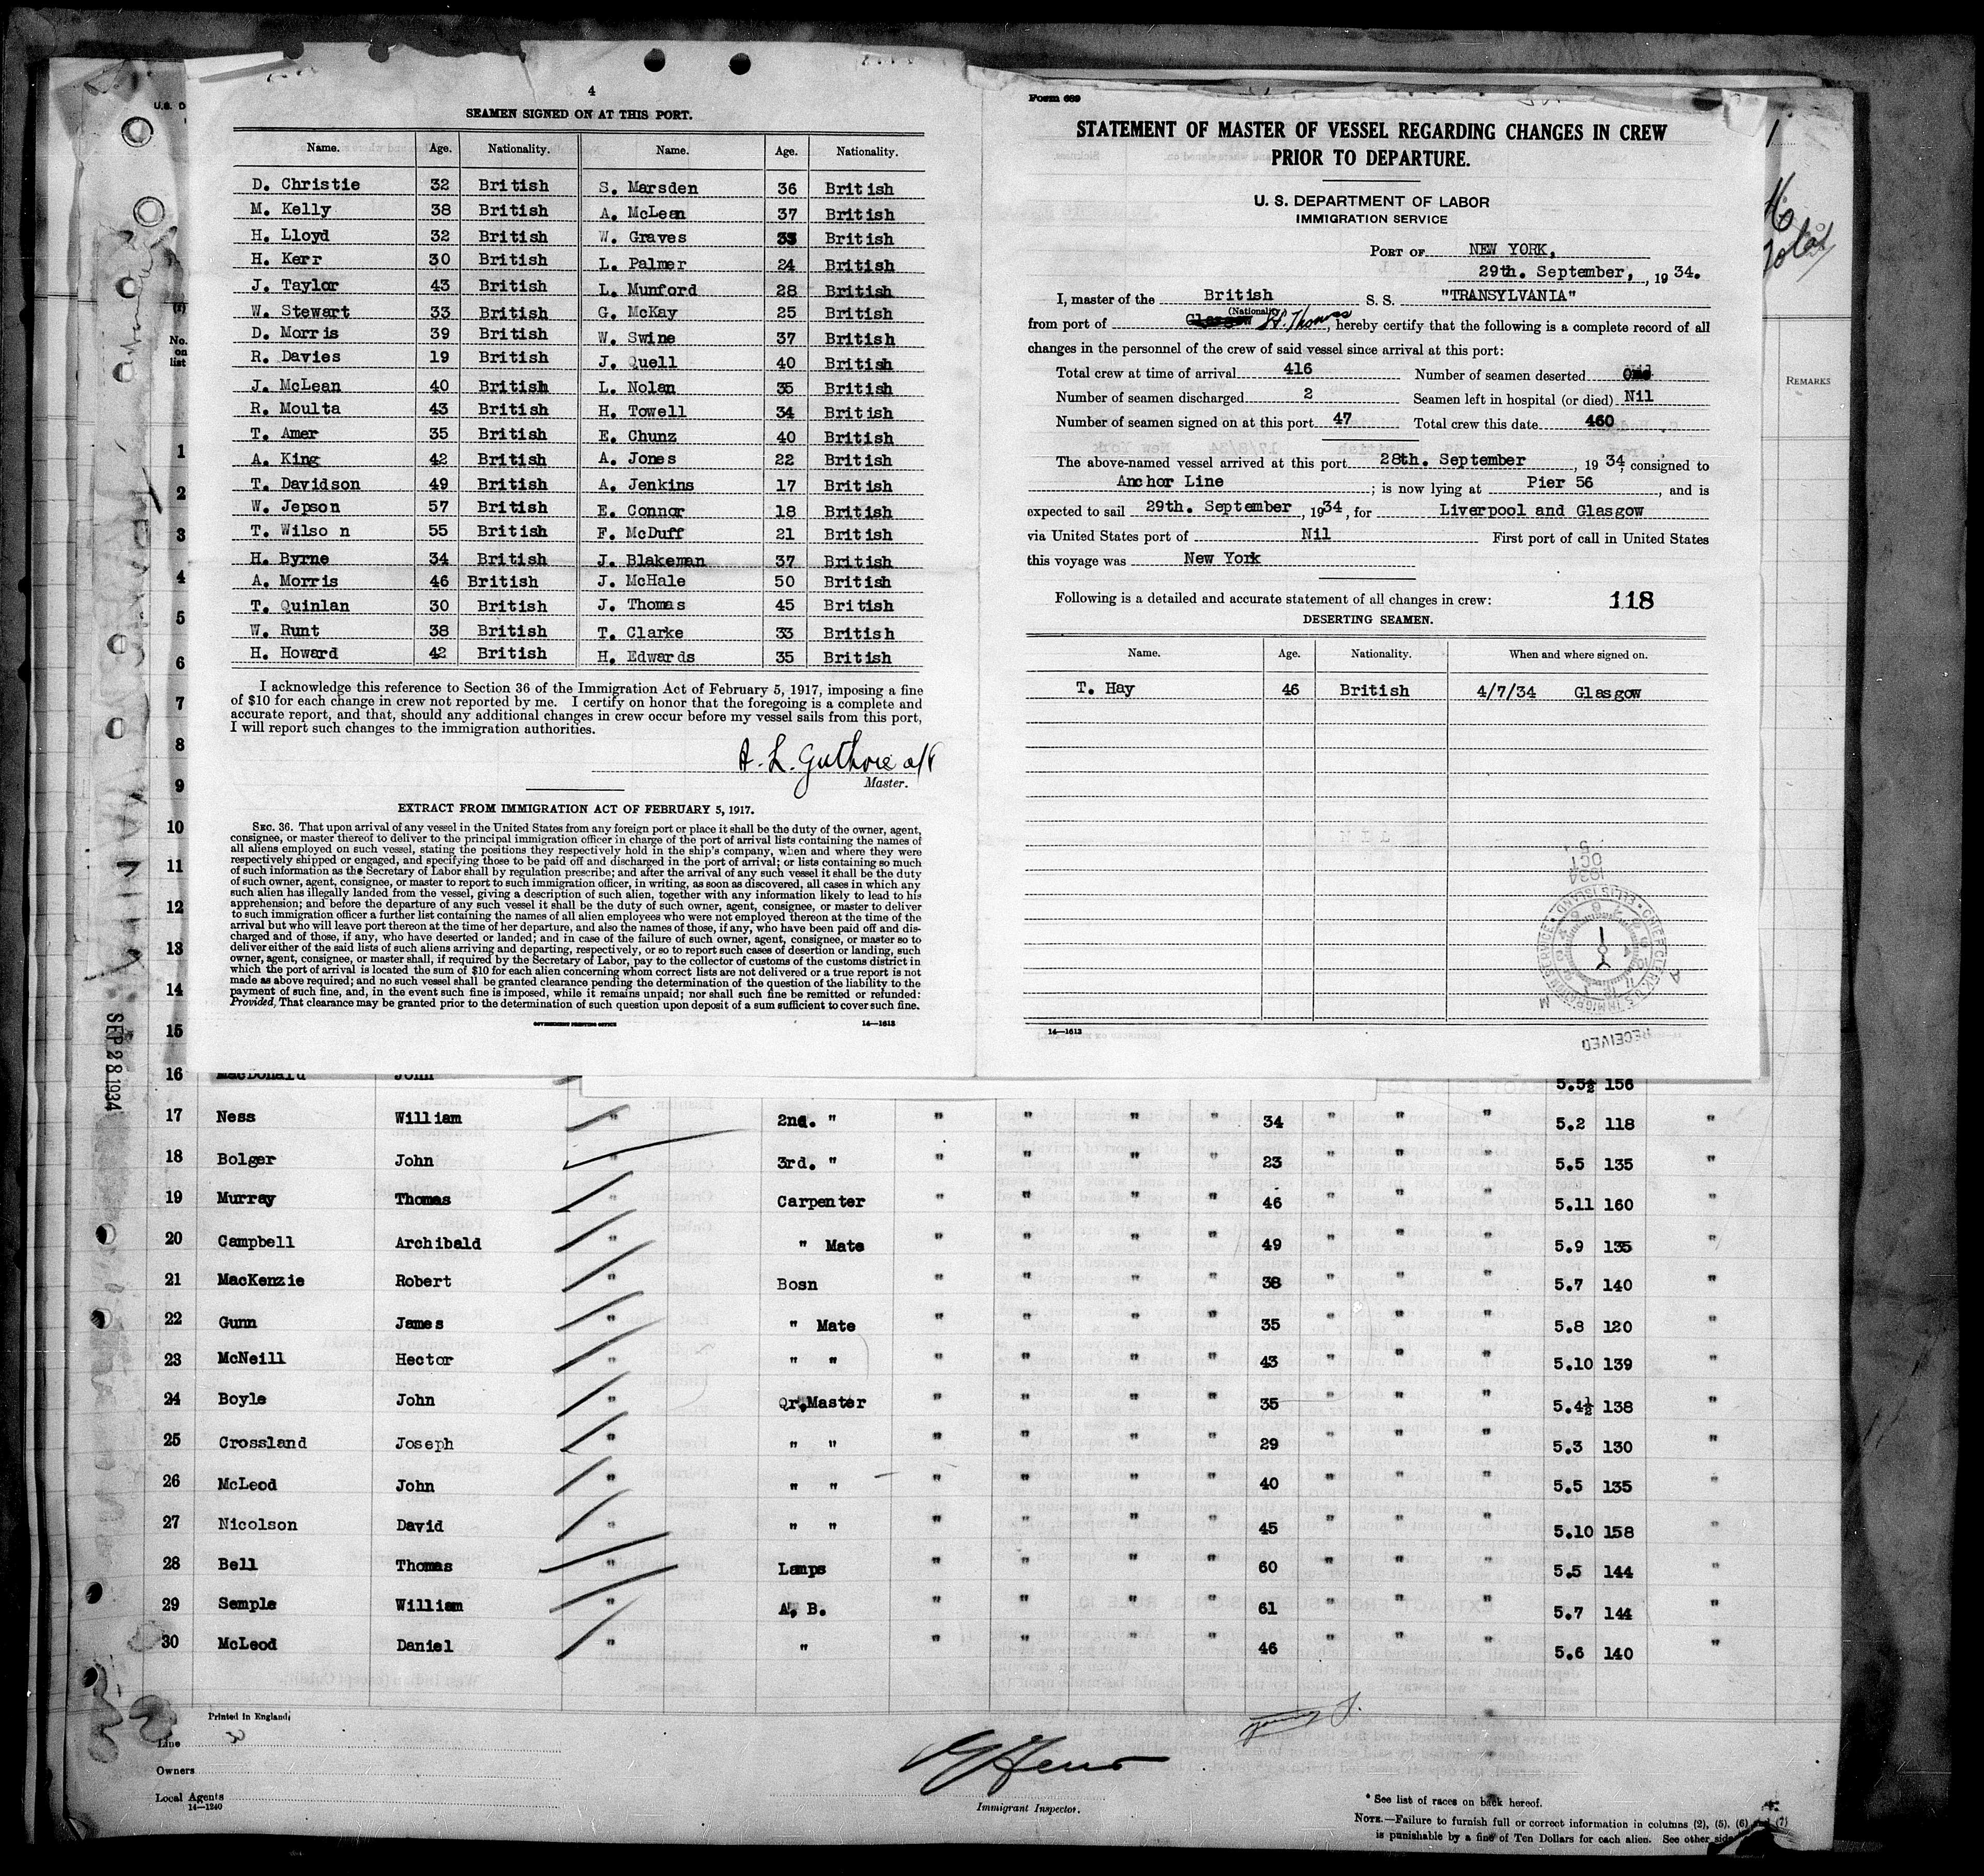 4
SEAMEN SIGNED ON AT THIS PORT.
Name. Age. Nationality. Name. Age. Nationality.
D. Christie 32 British S. Marsden 36 British
M. Kelly 38 British A. McLean 37 British
H. Lloyd 32 British W. Graves 33 British
H. Kerr 30 British L. Palmer 24 British
J. Taylor 43 British L. Munford 28 British
W. Stewart 33 British G. McKay 25 British
D. Morris 39 British W. Swine 37 British
R. Davies 19 British J. Quell 40 British
J. McLean 40 British L. Nolan 35 British
R. Moulta 43 British H. Towell 34 British
T. Amer 35 British E. Chunz 40 British
A. King 42 British A. Jones 22 British
T. Davidson 49 British A. Jenkins 17 British
W. Jepson 57 British E. Connor 18 British
T. Wilso n 55 British F. McDuff 21 British
H. Byrne 34 British J. Blakeman 37 British
A. Morris 46 British J. McHale 50 British
T. Quinlan 30 British J. Thomas 45 British
W. Runt 38 British T. Clarke 33 British
H. Howard 42 British H. Edwards 35 British
I acknowledge this reference to Section 36 of the Immigration Act of February 5, 1917, imposing a fine
of $10 for each change in crew not reported by me. I certify on honor that the foregoing is a complete and
accurate report, and that, should any additional changes in crew occur before my vessel sails from this port,
I will report such changes to the immigration authorities.
A. L. Guthrie
Master.
EXTRACT FROM IMMIGRATION ACT OF FEBRUARY 5, 1917.
SEC. 36. That upon arrival of any vessel in the United States from any foreign port or place it shall be the duty of the owner, agent,
consignee, or master thereof to deliver to the principal immigration officer in charge of the port of arrival lists containing the names of
all aliens employed on such vessel, stating the positions they respectively hold in the ship's company, when and where they were
respectively shipped or engaged, and specifying those to be paid off and discharged in the port of arrival; or lists containing so much
of such information as the Secretary of Labor shall by regulation prescribe; and after the arrival of any such vessel it shall be the duty
of such owner, agent, consignee, or master to report to such immigration officer, in writing, as soon as discovered, all cases in which any
such alien has illegally landed from the vessel, giving a description of such alien, together with any information likely to lead to his
apprehension; and before the departure of any such vessel it shall be the duty of such owner, agent, consignee, or master to deliver
to such immigration officer a further list containing the names of all alien employees who were not employed thereon at the time of the
arrival but who will leave port thereon at the time of her departure, and also the names of those, if any, who have been paid off and dis-
charged and of those, if any, who have deserted or landed; and in case of the failure of such owner, agent, consignee, or master so to
deliver either of the said lists of such aliens arriving and departing, respectively, or so to report such cases of desertion or landing, such
owner, agent, consignee, or master shall, if required by the Secretary of Labor, pay to the collector of customs of the customs district in
which the port of arrival is located the sum of $10 for each alien concerning whom correct lists are not delivered or a true report is not
made as above required; and no such vessel shall be granted clearance pending the determination of the question of the liability to the
payment of such fine, and, in the event such fine is imposed, while it remains unpaid; nor shall such fine be remitted or refunded:
Provided, That clearance may be granted prior to the determination of such question upon deposit of a sum sufficient to cover such fine.
GOVERNMENT PRINTING OFFICE 14—1613
Form 689
STATEMENT OF MASTER OF VESSEL REGARDING CHANGES IN CREW
PRIOR TO DEPARTURE.
U. S. DEPARTMENT OF LABOR
IMMIGRATION SERVICE
PORT OF NEW YORK,
29th. September, , 19 34.
I, master of the British S. S. "TRANSYLVANIA"
(Nationality)
from port of Glasgow H. Thomas, hereby certify that the following is a complete record of all
changes in the personnel of the crew of said vessel since arrival at this port:
Total crew at time of arrival 416 Number of seamen deserted
Number of seamen discharged 2 Seamen left in hospital (or died) Nil
Number of seamen signed on at this port 47 Total crew this date 460
The above-named vessel arrived at this port 28th. September , 19 34, consigned to
Anchor Line ; is now lying at Pier 56 , and is
expected to sail 29th. September , 1934, for Liverpool and Glasgow
via United States port of Nil First port of call in United States
this voyage was New York
Following is a detailed and accurate statement of all changes in crew: 118
DESERTING SEAMEN.
Name. Age. Nationality. When and where signed on.
T. Hay 46 British 4/7/34 Glasgow
14—1613
RECEIVED
1934
OCT
U.S. D
No.
on
list
REMARKS
1
2
3
4
5
6
7
8
9
10
11
12
13
14
15
SEP 28 1934
16 MacDonald John 5.5½ 156
17 Ness William " 2nd. " " " " " 34 " " " 5.2 118 "
18 Bolger John " 3rd. " " " " " 23 " " " 5.5 135 "
19 Murray Thomas " Carpenter " " " " 46 " " " 5.11 160 "
20 Campbell Archibald " " Mate " " " " 49 " " " 5.9 135 "
21 MacKenzie Robert " Bosn " " " " 38 " " " 5.7 140 "
22 Gunn James " " Mate " " " " 35 " " " 5.8 120 "
23 McNeill Hector " " " " " " " 43 " " " 5.10 139 "
24 Boyle John " Qr.Master " " " " 35 " " " 5.4½ 138 "
25 Crossland Joseph " " " " " " " 29 " " " 5.3 130 "
26 McLeod John " " " " " " " 40 " " " 5.5 135 "
27 Nicolson David " " " " " " " 45 " " " 5.10 158 "
28 Bell Thomas " Lamps " " " " 60 " " " 5.5 144 "
29 Semple William " A. B. " " " " 61 " " " 5.7 144 "
30 McLeod Daniel " " " " " " 46 " " " 5.6 140 "
Printed in England.
Line
Owners
Local Agents
14—1240
Immigrant Inspector.
* See list of races on back hereof.
NOTE.—Failure to furnish full or correct information in columns (2), (5), (6) and (7)
is punishable by a fine of Ten Dollars for each alien. See other side